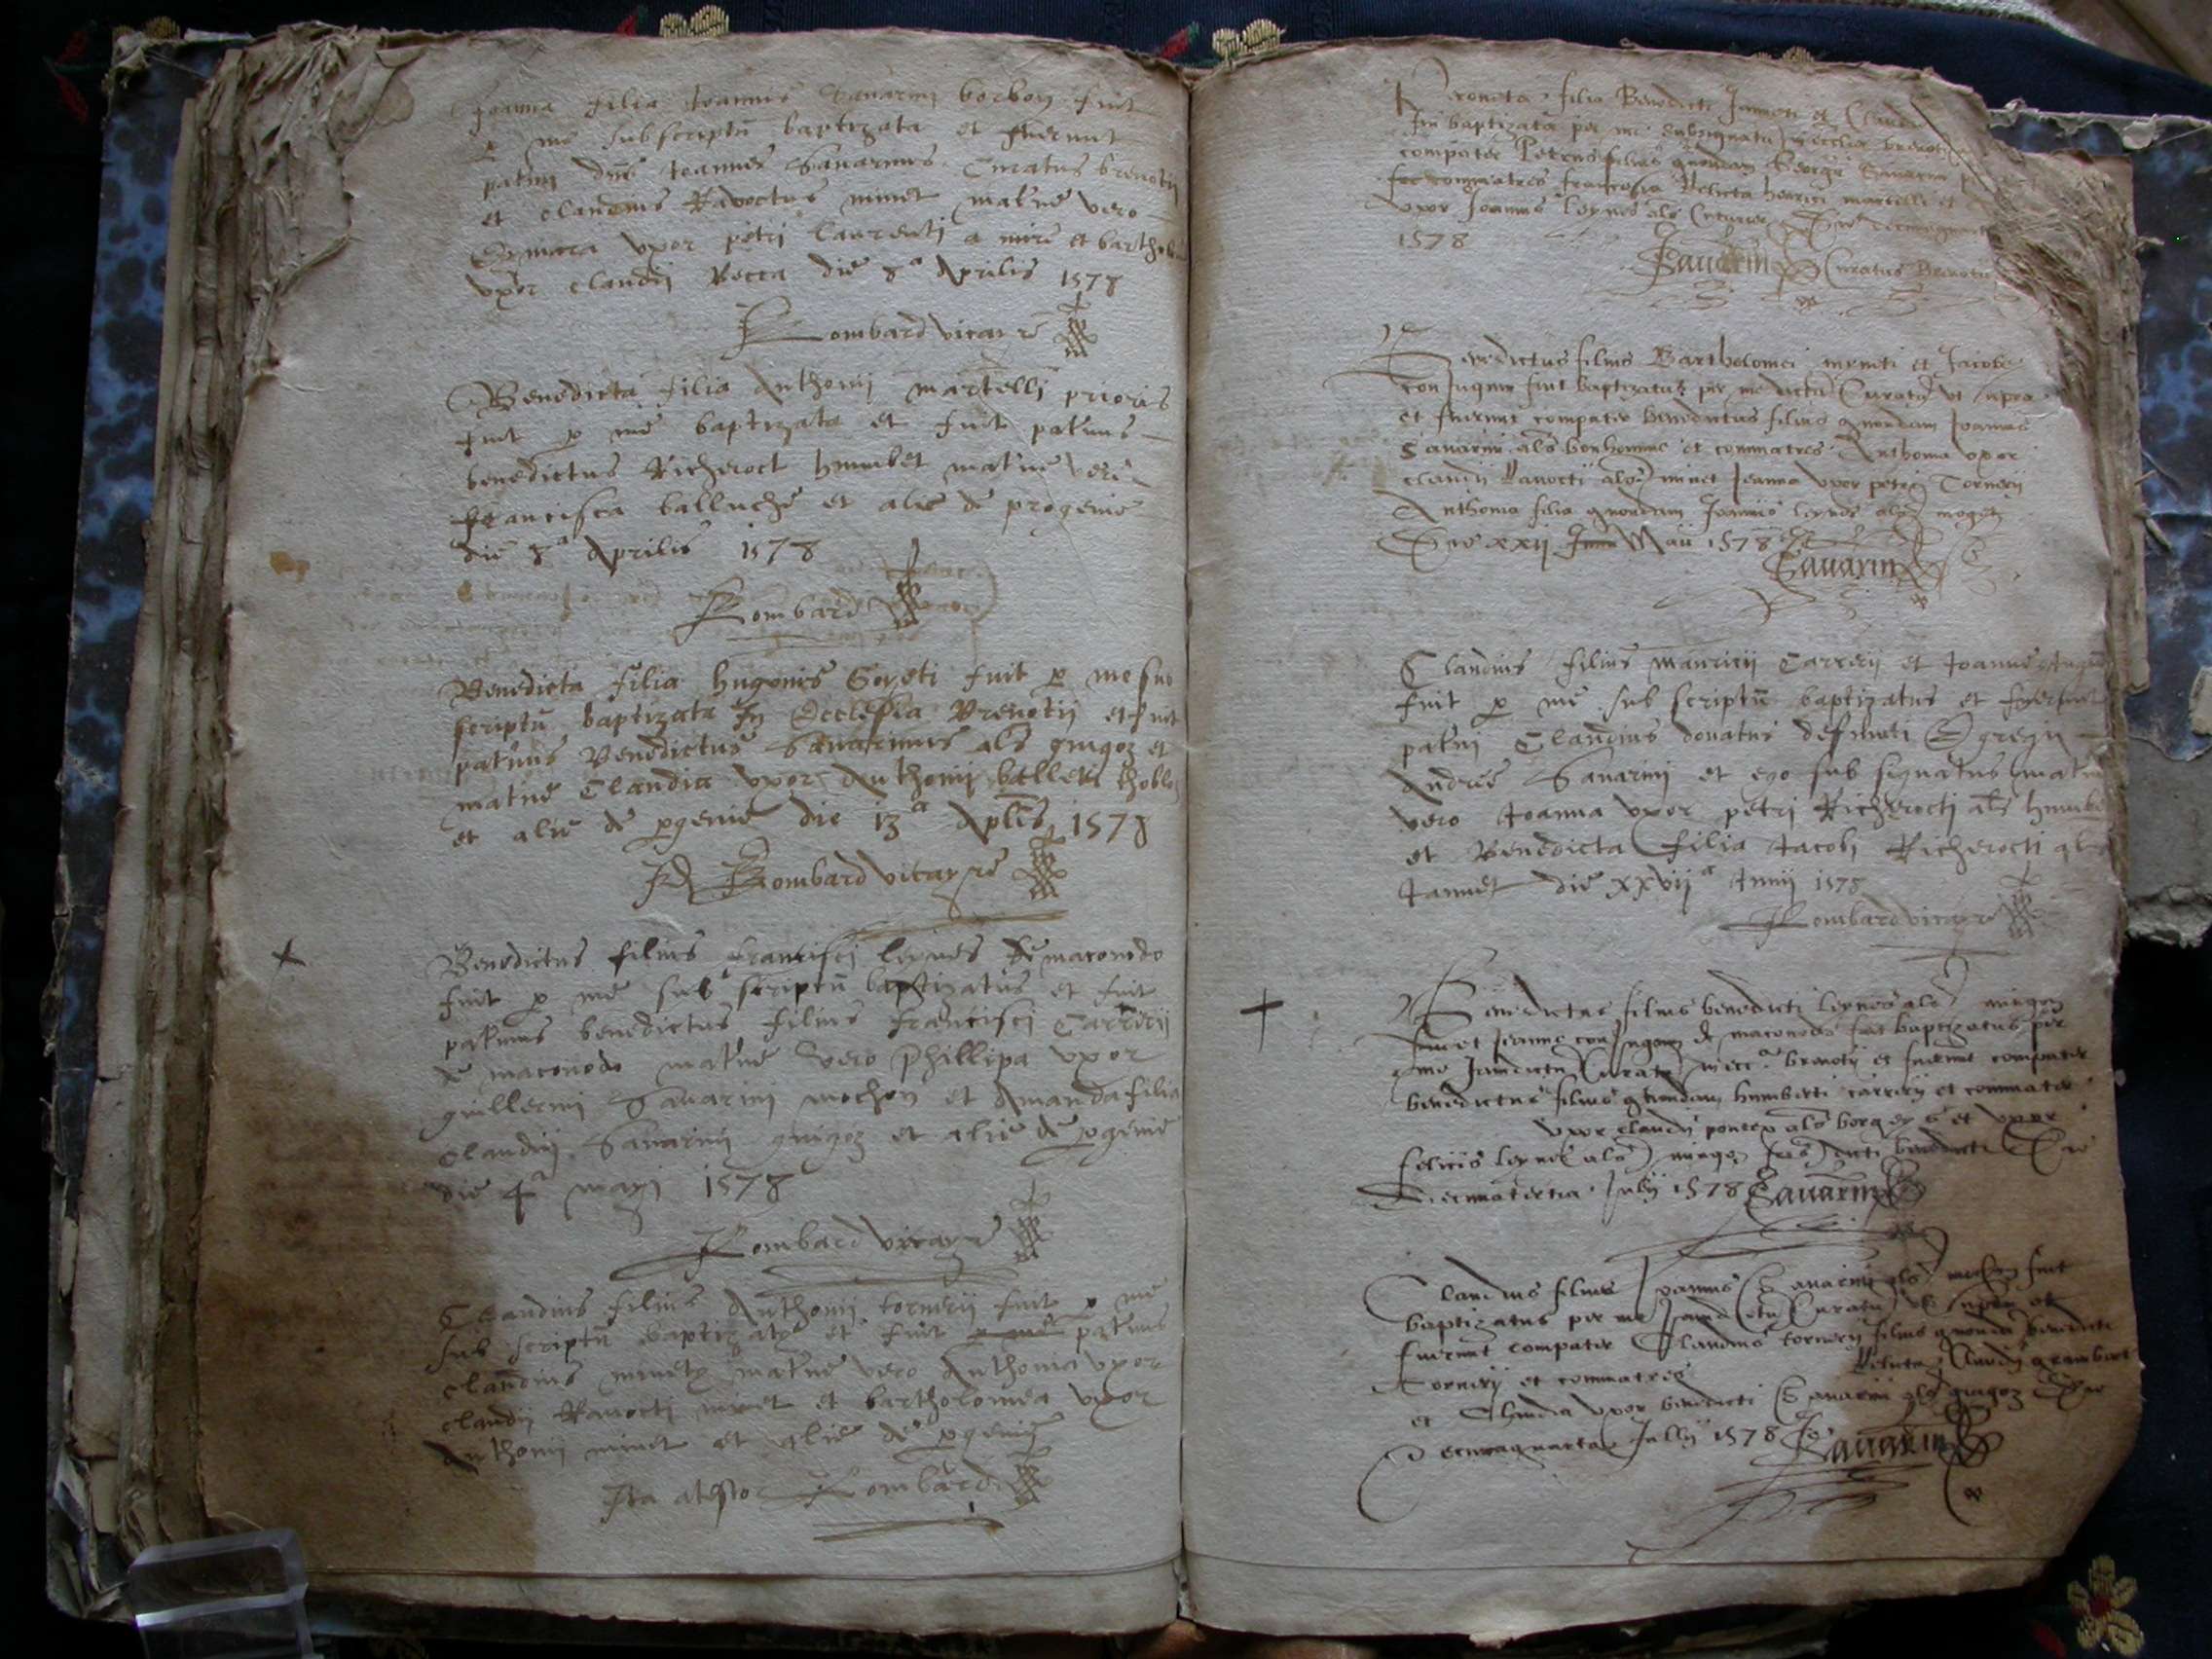 Joanna filia Joannis Sauarini borbon fuit
p me subscriptu baptizata et fuerunt
patrini dns Joannes Sauarinus Curatus brenotii
et claudius Rauoctus minet matne vero
uxor petri laurenti a mire et barthol
uxor claudii Becca die 8a Aprilis 1578
Lombard vicayre
Benedicta filia Anthonii martelli prioris
fuit p me baptizata et fuit patnus
benedictus Richeroct humbet matne vero
francisca balluche et alie de progenie
die 8a Aprilis 1578
Lombard
Benedicta filia hugonis Goyeti fuit p me sub
scriptu baptizata In Ecclesia Brenotii et fuit
patnus Benedictus Sauarinus als guigoz et
matne Claudia uxor Anthonii balleti
et alie de pgenie die 13a Aplis 1578
Lombard vicayre
Benedictus filius francisci leynes de maconodo
fuit p me sub scriptu baptizatus et fuit
patnus benedictus filius francisci Carrerii
de maconodo matne vero Phillipa uxor
guillermi Sauarini mochon et Amanda filia
claudii Sauarini guigoz et alie de pgenie
die 4a maii 1578
Lombard vicayre
Claudius filius Anthonii tornerii fuit p me
sub scriptu baptizatus et fuit p me patnus
claudius minet matne vero Anthonia uxor
claudii Rauocti minet et bartholomea uxor
Anthonii minet et alie de pgenie
Ita atestor Lombard
filia Benedicti et
baptizata per me subsignatu in ecclesia brenotii
compater Petrus filius quondam Georgii Sauarini
commatres francesia Relicta henrici martelli et
uxor Joannis leynes als
1578
Sauarin Curatus Brenotii
Benedictus filius Bartholomei et Jacobe
conjugum fuit baptizatus per me dictu Curatu ut supra
et fuerunt compater benedictus filius quondam Joannis
Sauarini als bonhomme et commatres Anthonia uxor
claudii Rauocti als minet Jeanna uxor petri Tornerii
Anthonia filia quondam Joannis leynes als
Die xxii Maii 1578
Sauarin
Claudius filius mauricii Carrerii et Joanne
fuit p me sub scriptu baptizatus et fuerunt
patni Claudius donatus defuncti Egregii
Andree Sauarini et ego sub signatus matne
vero Joanna uxor petri Richerocti als humbe
et Benedicta filia Jacobi Richerocti als
Jannet die xxvii a Junii 1578
Lombard vicayre
Benedictus filius benedicti leynes als mugoz
et Jeanne conjugum de maconodo fuit baptizatus per
me Jamdictu Curatu in ecc a brenotii et fuerunt compater
benedictus filius quondam humberti carrerii et commater
uxor claudii poncep als borgey et uxor
felicis leynes als mugoz dicti benedicti Die
Decimatertia Julii 1578 Sauarin
Claudius filius Joannis Sauarini als mochon fuit
baptizatus per me Jamdictu Curatu ut supra et
fuerunt compater Claudius tornerii filius quonda benedicti
Tornerii et commatres Relicta Claudii grambert
et Claudia uxor benedicti Sauarini als guigoz Die
Decimaquarta Jullii 1578 Sauarin